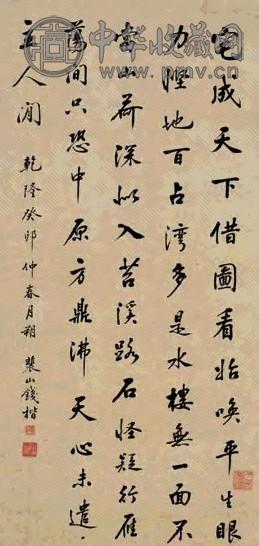 中华收藏网
www.pmv.cn
宅成天下借圖看始喚平生眼
力慳地百占灣多是水樓無一面不
當山荷深似入苕溪路石怪疑行雁
蕩間只恐中原方鼎沸天心未遣
主人閒
乾隆癸卯仲春月朔 裴山錢楷